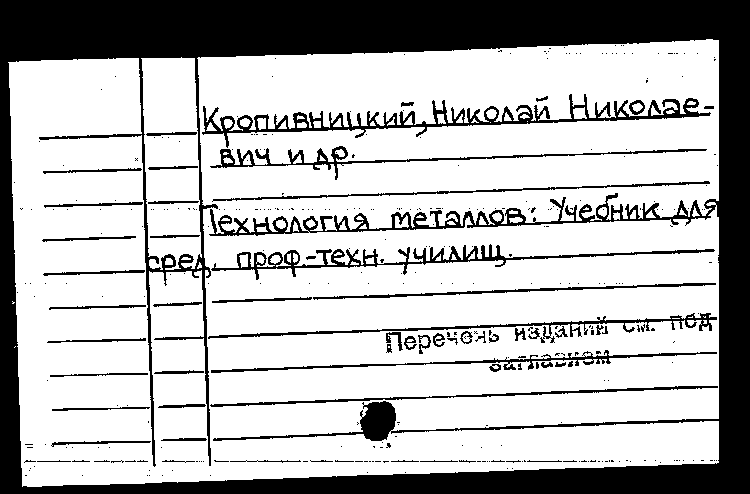 Кропивницкий, Николай Николае-
вич и др.
Технология металлов: Учебник для
сред. проф.-техн. училищ.
Перечень изданий см. под
заглавием